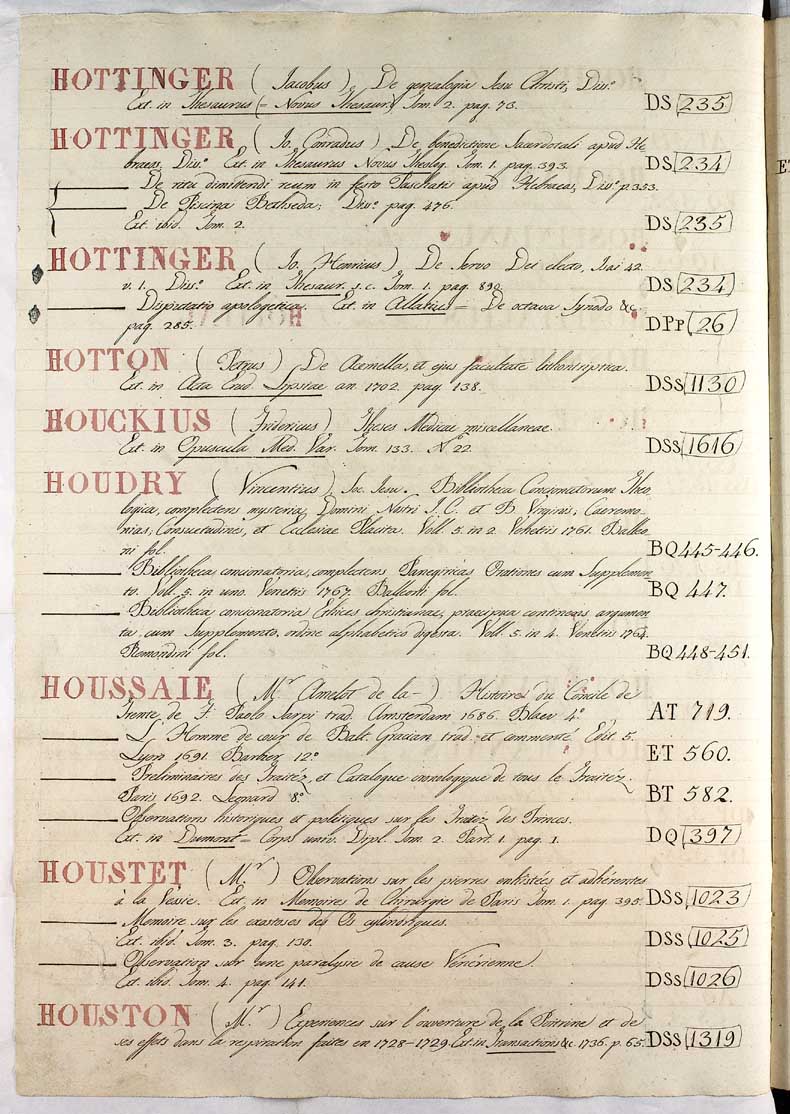 HOTTINGER (Jacobus) De genealogia Jesu Christi, Diss.º
Ext. in Thesaurus (= Novus Thesaur.) Tom. 2. pag. 73. DS (235)
HOTTINGER (Jo. Conradus) De benedictione Sacerdotali apud He
braeos, Diss.º Ext. in Thesaurus Novus Theolog. Tom. 1. pag. 393. DS (234)
——— De ritu dimittendi reum in festo Paschatis apud Hebraeos, Diss.º p. 353.
——— De Piscina Bethseda; Diss.º pag. 476.
Ext. ibid. Tom. 2. DS (235)
HOTTINGER (Jo. Henricus) De Servo Dei electo, Isai 42.
v. 1. Diss.º Ext. in Thesaur. s.c. Tom. 1. pag. 890. DS (234)
——— Disputatio apologetica. Ext. in Allatius = De octava Synodo &c.
pag. 285. DPP (26)
HOTTON (Petrus) De Acmella, et ejus facultate lithontriptica.
Ext. in Acta Erud. Lipsiae an. 1702. pag. 138. DSS (1130)
HOUCKIUS (Fridericus) Theses Medicae miscellaneae.
Ext. in Opuscula Med. Var. Tom. 133. Nº 22 DSS (1616)
HOUDRY (Vincentius) Soc. Jesu. Bibliotheca Concionatorum Theo
logica, complectens mysteria, Domini Nostri J.C. et B. Virginis, Caeremo-
nias, Consuetudines, et Ecclesiae Placita. Voll. 5. in 2. Venetiis 1761. Balleo
ni fol. BQ 445-446.
——— Bibliotheca concionatoria, complectens Panegiricas Orationes cum Supplemen-
to. Voll. 5. in uno. Venetiis 1767. Balleoni fol. BQ 447.
——— Bibliotheca concionatoria Ethices christianae, praecipua continens argumen
ta, cum Supplemento, ordine alphabetico digesta. Voll. 5 in 4. Venetiis 1764.
Remondini fol. BQ 448-451.
HOUSSAIE (Mr Amelot de la-) Histoire du Concile de
Trente de F. Paolo Sarpi trad. Amsterdam 1686. Blaev 4º AT 719.
——— L'Homme de cour de Balt. Gracian trad. et commenté Edit. 5.
Lyon 1691. Barbier 12º ET 560.
——— Preliminaires des Traitéz, et Catalogue cronologique de tous le Traitéz.
Paris 1692. Leonard 8º BT 582.
——— Observations historiques et politiques sur les Traitez des Princes.
Ext. in Dumont = Corps univ. Dipl. Tom. 2. Part. 1. pag. 1. DQ (397)
HOUSTET (M.r) Observations sur les pierres enkistées et adhérentes
à la Vessie. Ext. in Memoires de Chirurgie de Paris Tom. 1. pag. 395. DSS (1023)
——— Memoire sur les exostoses des Os cylindriques.
Ext. ibid. Tom. 3. pag. 130. DSS (1025)
——— Observation sur une paralysie de cause Vénérienne.
Ext. ibid. Tom. 4. pag. 141. DSS (1026)
HOUSTON (M.r) Experiences sur l'ouverture de la Poitrine et de
ses effets dans la respiration faites en 1728-1729. Ext. in Transactions &c. 1736. p. 65. DSS (1319)